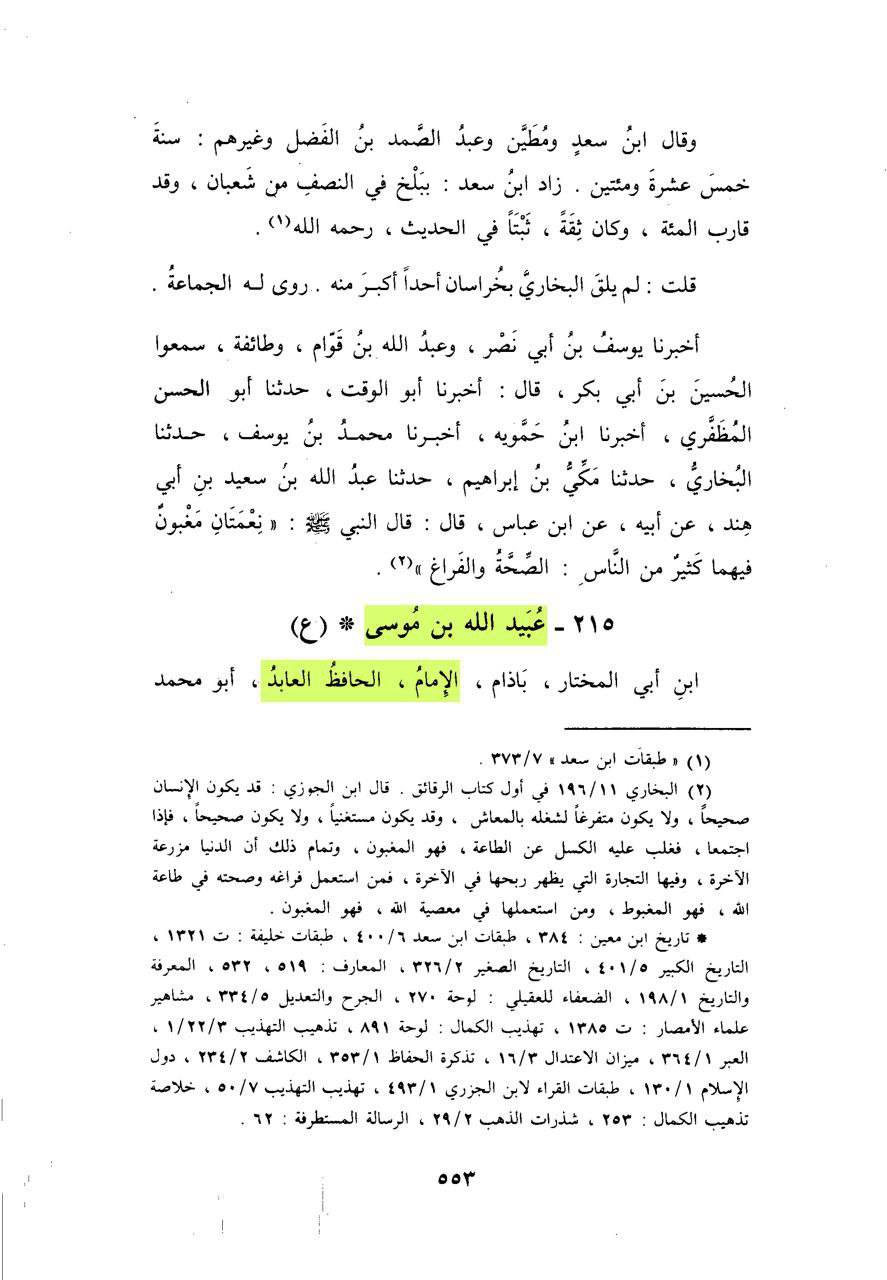 وقال ابنُ سعدٍ ومُطَيَّن وعبدُ الصَّمد بنُ الفَضل وغيرهم : سنةَ
خمسَ عشرةَ ومئتين . زاد ابنُ سعد : ببَلْخ في النصفِ من شَعبان ، وقد
قارب المئة ، وكان ثِقَةً ، ثَبْتَاً في الحديث ، رحمه الله(١) .
قلت : لم يلقَ البخاريُّ بخُراسان أحداً أكبـرَ منه . روى لـه الجماعةُ .
أخبرنا يوسفُ بنُ أبي نَصْر ، وعبدُ الله بنُ قَوّام ، وطائفة ، سمعوا
الحُسينَ بنَ أبي بكر ، قال : أخبرنا أبو الوقت ، حدثنا أبو الحسن
المُظَفَّري ، أخبرنا ابنُ حَمَّويه ، أخبـرنا محمـدُ بنُ يوسف ، حـدثنا
البُخاريُّ ، حدثنا مَكِّيُّ بنُ إبراهيم ، حدثنا عبدُ الله بنُ سعيد بنِ أبي
هِند ، عن أبيه ، عن ابن عباس ، قال : قال النبي ﷺ : « نِعْمَتَانِ مَغْبونٌ
فيهما كَثيرٌ من النَّاسِ : الصِّحَّةُ والفَراغ »(٢) .
٢١٥ ـ عُبَيد الله بن مُوسى * (ع)
ابنِ أبي المختار ، بَاذام ، الإِمامُ ، الحافظُ العابدُ ، أبو محمد
(١) « طبقات ابن سعد » ٣٧٣/٧ .
(٢) البخاري ١٩٦/١١ في أول كتاب الرقائق . قال ابن الجوزي : قد يكون الإنسان
صحيحاً ، ولا يكون متفرغاً لشغله بالمعاش ، وقد يكون مستغنياً ، ولا يكون صحيحاً ، فإذا
اجتمعا ، فغلب عليه الكسل عن الطاعة ، فهو المغبون ، وتمام ذلك أن الدنيا مزرعة
الآخرة ، وفيها التجارة التي يظهر ربحها في الآخرة ، فمن استعمل فراغه وصحته في طاعة
الله ، فهو المغبوط ، ومن استعملها في معصية الله ، فهو المغبون .
* تاريخ ابن معين : ٣٨٤ ، طبقات ابن سعد ٤٠٠/٦ ، طبقات خليفة : ت ١٣٢١ ،
التاريخ الكبير ٤٠١/٥ ، التاريخ الصغير ٣٢٦/٢ ، المعارف : ٥١٩ ، ٥٣٢ ، المعرفة
والتاريخ ١٩٨/١ ، الضعفاء للعقيلي : لوحة ٢٧٠ ، الجرح والتعديل ٣٣٤/٥ ، مشاهير
علماء الأمصار : ت ١٣٨٥ ، تهذيب الكمال : لوحة ٨٩١ ، تذهيب التهذيب ١/٢٢/٣ ،
العبر ٣٦٤/١ ، ميزان الاعتدال ١٦/٣ ، تذكرة الحفاظ ٣٥٣/١ ، الكاشف ٢٣٤/٢ ، دول
الإسلام ١٣٠/١ ، طبقات القراء لابن الجزري ٤٩٣/١ ، تهذيب التهذيب ٥٠/٧ ، خلاصة
تذهيب الكمال : ٢٥٣ ، شذرات الذهب ٢٩/٢ ، الرسالة المستطرفة : ٦٢ .
٥٥٣